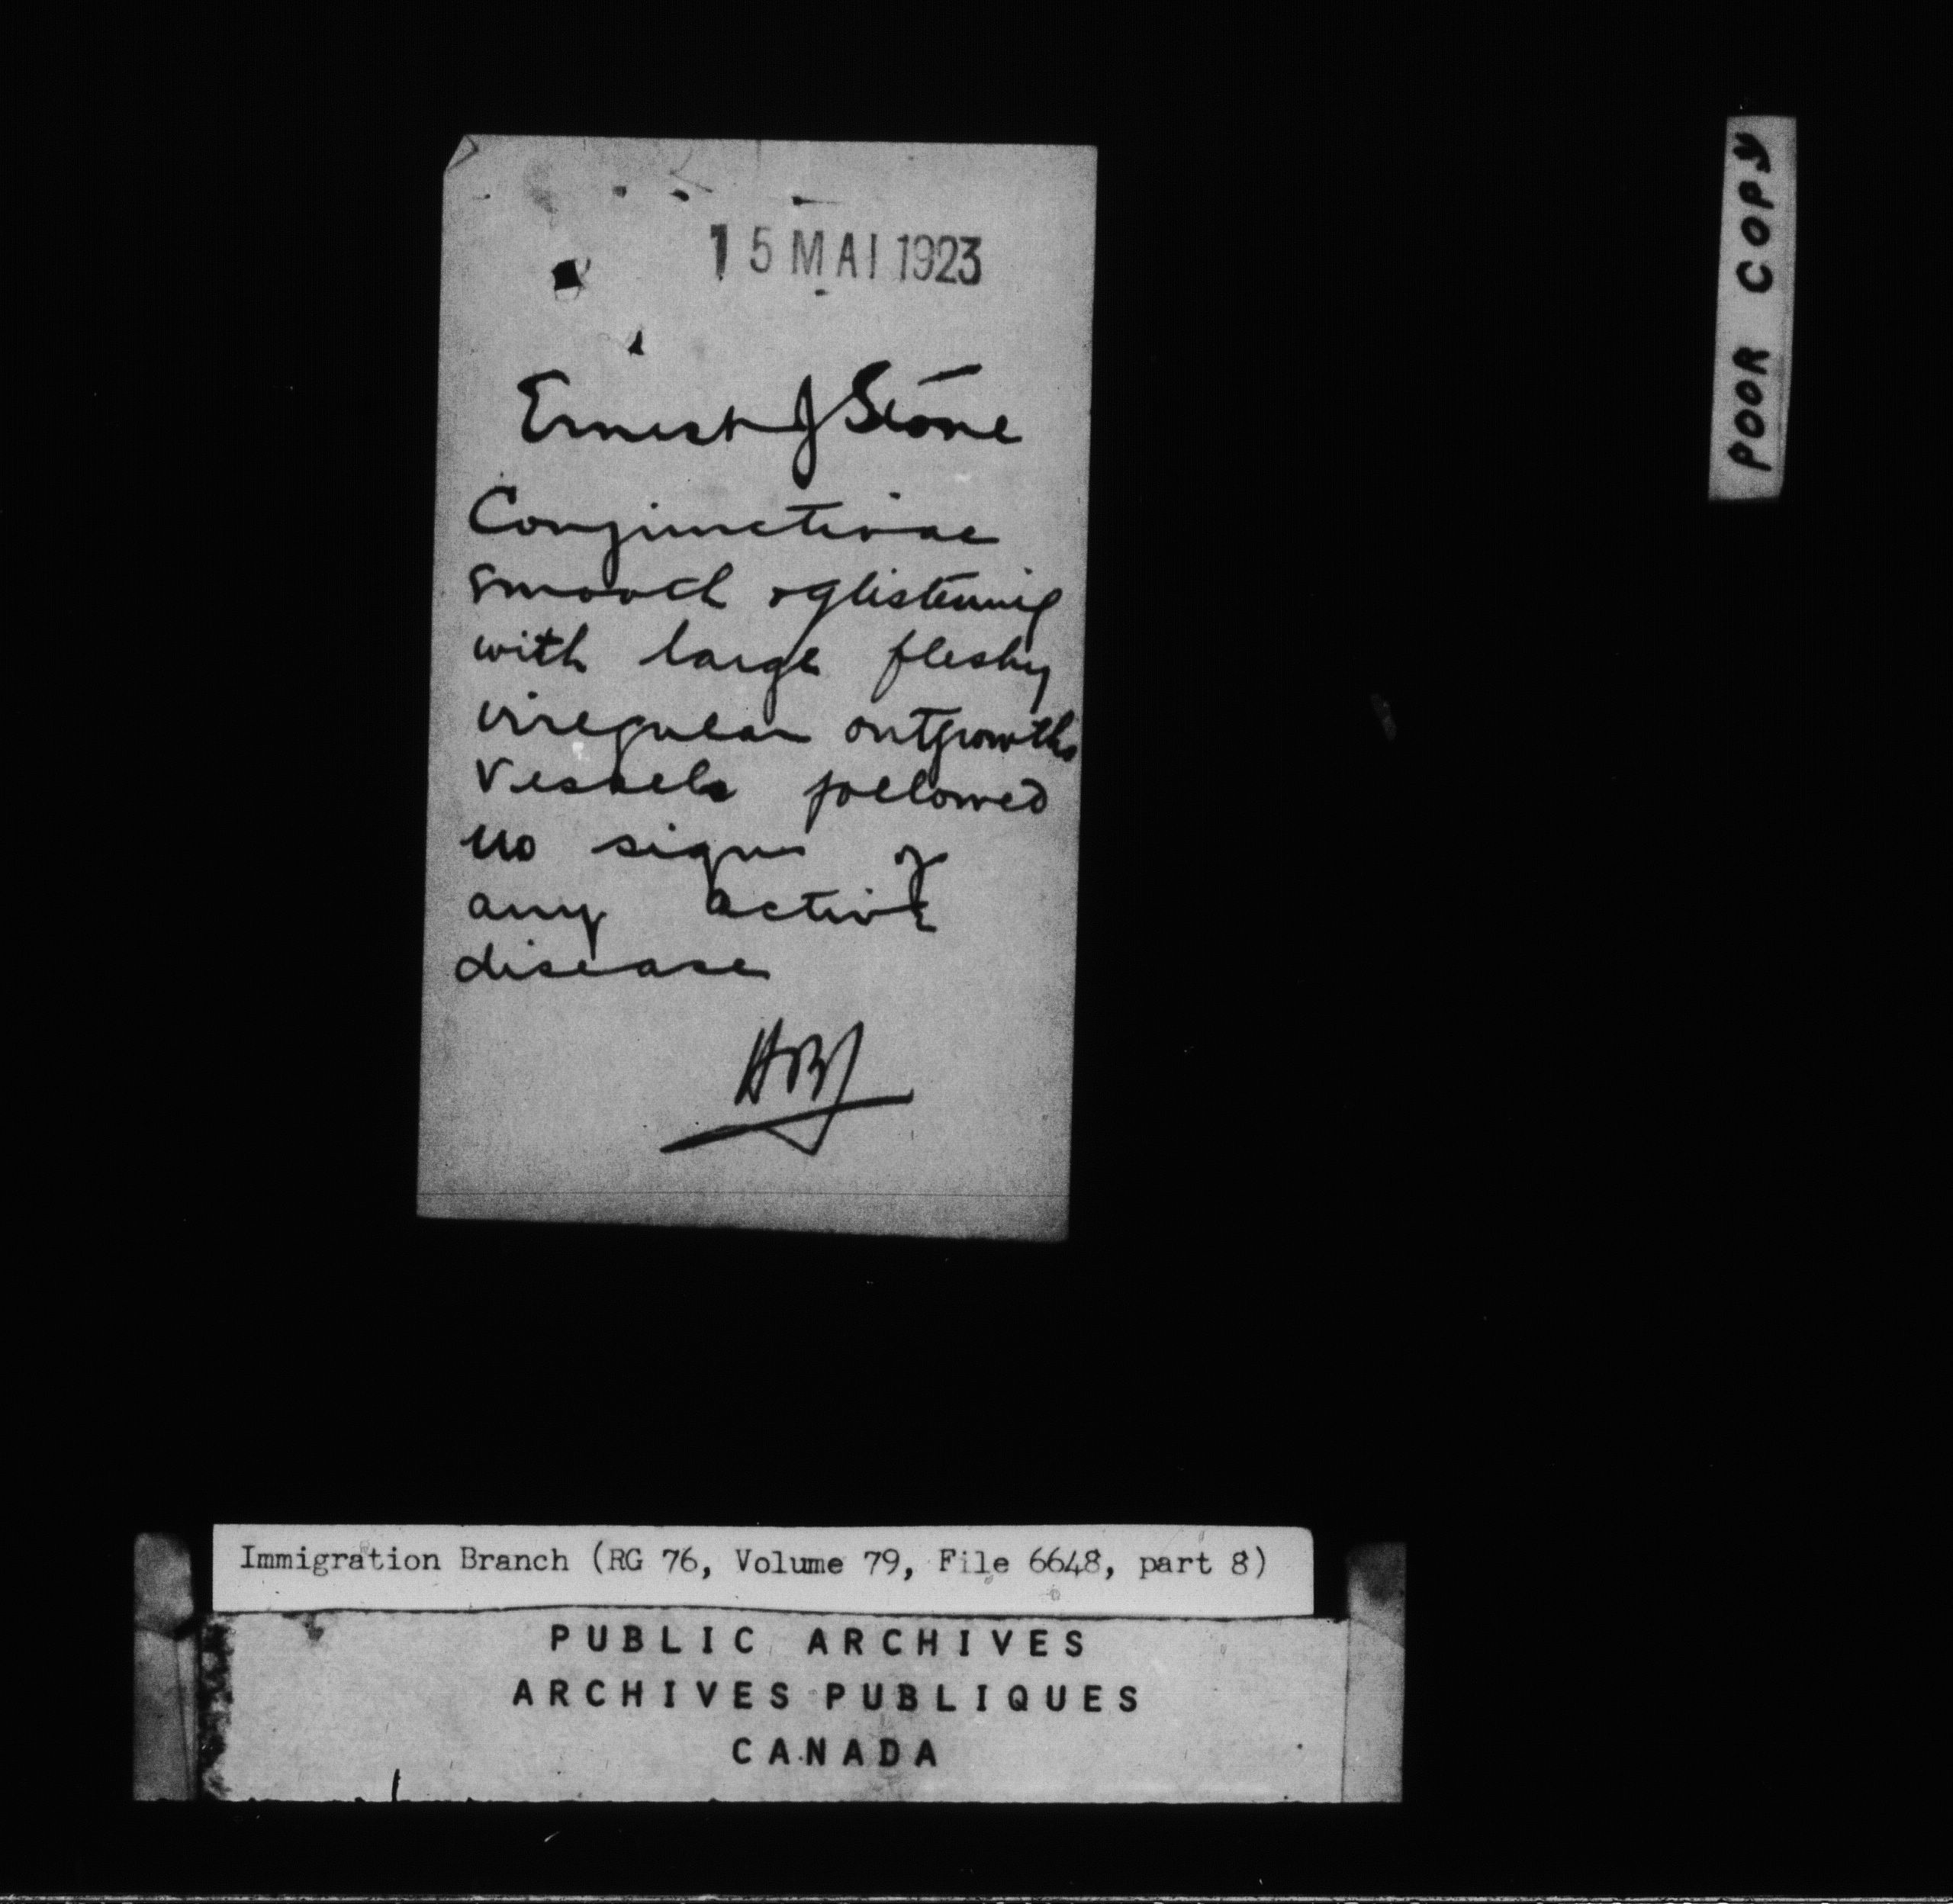 15 MAI 1923
Ernest J Stone
Conjunctivae
smooth & glistening
with large fleshy
irregular outgrowths
Vessels followed
no signs of
any active
disease
HBJ
POOR COPY
Immigration Branch (RG 76, Volume 79, File 6648, part 8)
PUBLIC ARCHIVES
ARCHIVES PUBLIQUES
CANADA